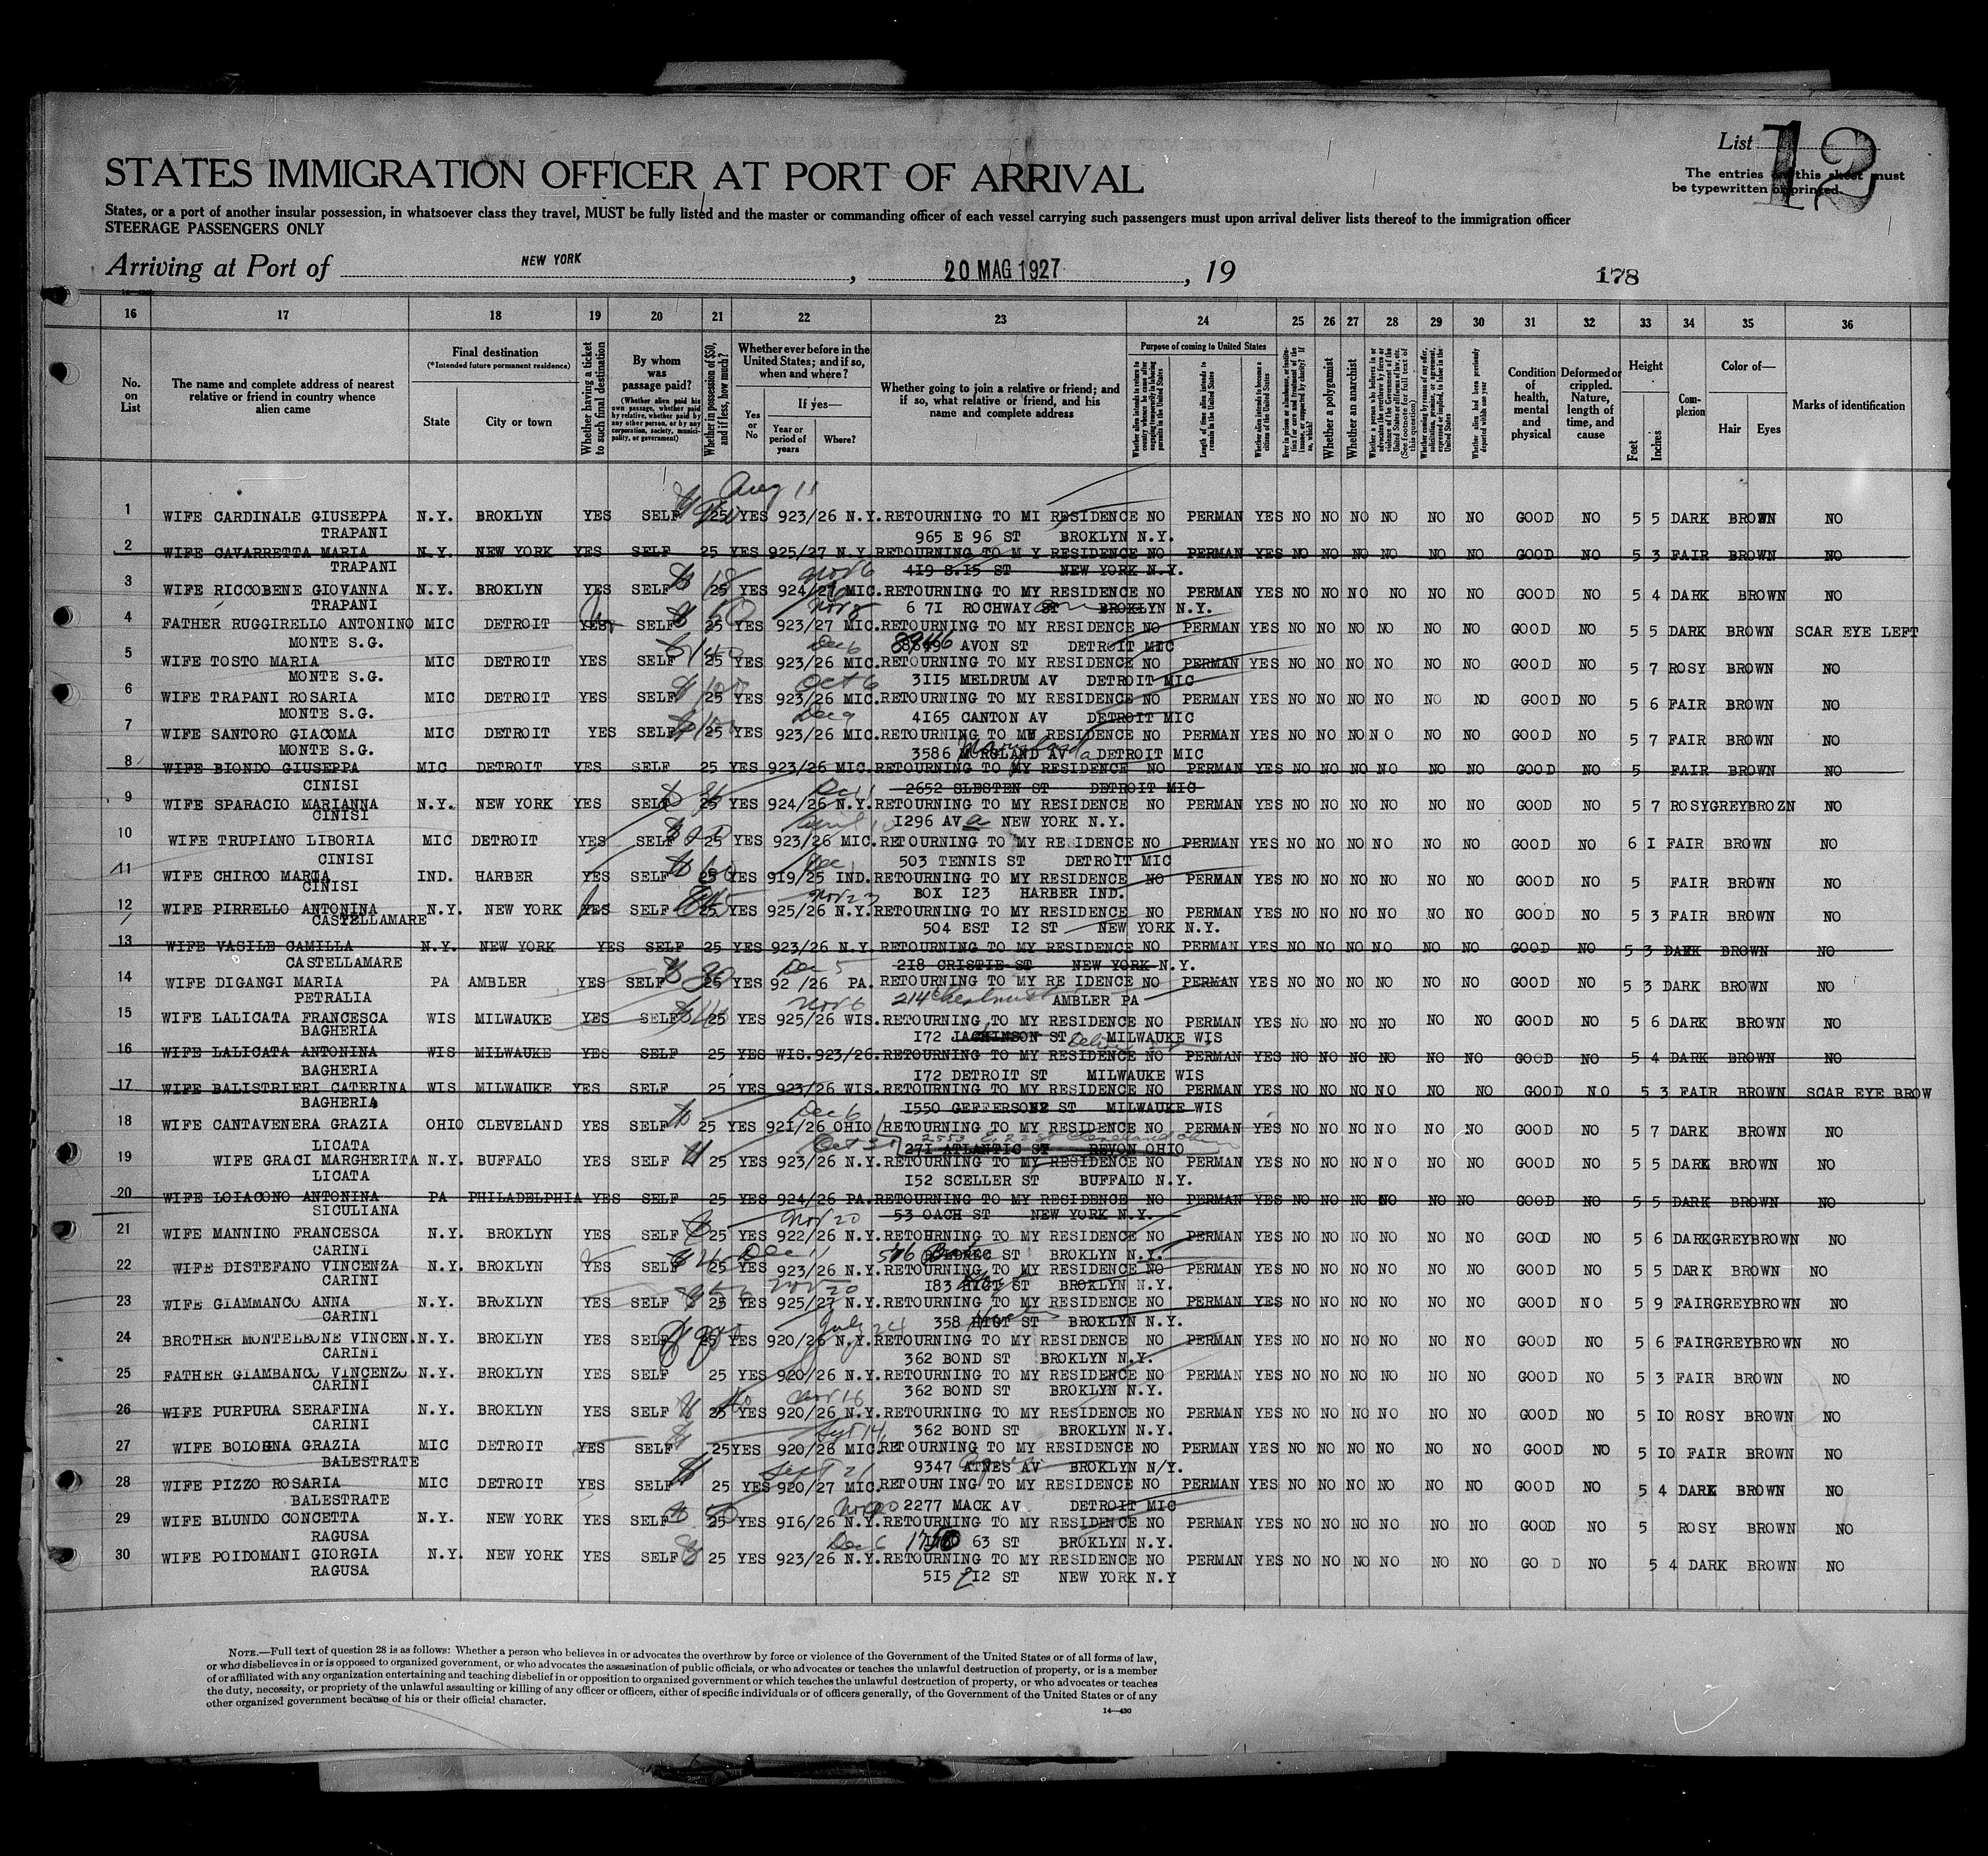 List 12
The entries on this sheet must
be typewritten or printed.
STATES IMMIGRATION OFFICER AT PORT OF ARRIVAL
States, or a port of another insular possession, in whatsoever class they travel, MUST be fully listed and the master or commanding officer of each vessel carrying such passengers must upon arrival deliver lists thereof to the immigration officer
STEERAGE PASSENGERS ONLY
Arriving at Port of NEW YORK, 20 MAG 1927, 19
178
16 17 18 19 20 21 22 23 24 25 26 27 28 29 30 31 32 33 34 35 36
No. on List
The name and complete address of nearest relative or friend in country whence alien came
Final destination
(*Intended future permanent residence)
State
City or town
Whether having a ticket to such final destination
By whom was passage paid?
(Whether alien paid his own passage, whether paid by relative, whether paid by any other person, or by any corporation, society, municipality, or government)
Whether in possession of $50, and if less, how much?
Whether ever before in the United States; and if so, when and where?
Yes or No
If yes—
Year or period of years
Where?
Whether going to join a relative or friend; and if so, what relative or friend, and his name and complete address
Purpose of coming to United States
Length of time alien intends to remain in the United States
Whether alien intends to become a citizen of the United States
Whether a polygamist
Whether an anarchist
Condition of health, mental and physical
Deformed or crippled. Nature, length of time, and cause
Height
Feet
Inches
Complexion
Color of—
Hair
Eyes
Marks of identification
Aug 11
1 WIFE CARDINALE GIUSEPPA N.Y. BROKLYN YES SELF 25 YES 923/26 N.Y. RETOURNING TO MI RESIDENCE NO PERMAN YES NO NO NO NO NO NO GOOD NO 5 5 DARK BROWN NO
TRAPANI 965 E 96 ST BROKLYN N.Y.
2 WIFE CAVARRETTA MARIA N.Y. NEW YORK YES SELF 25 YES 925/27 N.Y. RETOURNING TO M Y RESIDENCE NO PERMAN YES NO NO NO NO NO NO GOOD NO 5 3 FAIR BROWN NO
TRAPANI 4I9 S.I5 ST NEW YORK N.Y.
Nov 6
3 WIFE RICCOBENE GIOVANNA N.Y. BROKLYN YES SELF 25 YES 924/27 MIC. RETOURNING TO MY RESIDENCE NO PERMAN YES NO NO NO NO NO NO GOOD NO 5 4 DARK BROWN NO
TRAPANI 6 7I ROCHWAY ST BROKLYN N.Y.
Nov 8
4 FATHER RUGGIRELLO ANTONINO MIC DETROIT YES SELF 25 YES 923/27 MIC. RETOURNING TO MY RESIDENCE NO PERMAN YES NO NO NO NO NO NO GOOD NO 5 5 DARK BROWN SCAR EYE LEFT
MONTE S.G. 8946 AVON ST DETROIT MIC
Dec 6
5 WIFE TOSTO MARIA MIC DETROIT YES SELF 25 YES 923/26 MIC. RETOURNING TO MY RESIDENCE NO PERMAN YES NO NO NO NO NO NO GOOD NO 5 7 ROSY BROWN NO
MONTE S.G. 3II5 MELDRUM AV DETROIT MIC
Oct 6
6 WIFE TRAPANI ROSARIA MIC DETROIT YES SELF 25 YES 923/26 MIC. RETOURNING TO MY RESIDENCE NO PERMAN YES NO NO NO NO NO NO GOOD NO 5 6 FAIR BROWN NO
MONTE S.G. 4I65 CANTON AV DETROIT MIC
Dec 9
7 WIFE SANTORO GIACOMA MIC DETROIT YES SELF 25 YES 923/26 MIC. RETOURNING TO MY RESIDENCE NO PERMAN YES NO NO NO NO NO NO GOOD NO 5 7 FAIR BROWN NO
MONTE S.G. 3586 Maryland AV DETROIT MIC
8 WIFE BIONDO GIUSEPPA MIC DETROIT YES SELF 25 YES 923/26 MIC. RETOURNING TO MY RESIDENCE NO PERMAN YES NO NO NO NO NO NO GOOD NO 5 FAIR BROWN NO
CINISI 2652 SLESTEN ST DETROIT MIC
Dec 11
9 WIFE SPARACIO MARIANNA N.Y. NEW YORK YES SELF 25 YES 924/26 N.Y. RETOURNING TO MY RESIDENCE NO PERMAN YES NO NO NO NO NO NO GOOD NO 5 7 ROSY GREY BROZN NO
CINISI I296 AV a NEW YORK N.Y.
April 10
10 WIFE TRUPIANO LIBORIA MIC DETROIT YES SELF 25 YES 923/26 MIC. RETOURNING TO MY RESIDENCE NO PERMAN YES NO NO NO NO NO NO GOOD NO 6 I FAIR BROWN NO
CINISI 503 TENNIS ST DETROIT MIC
Dec 1
11 WIFE CHIRCO MARIA IND. HARBER YES SELF 25 YES 9I9/25 IND. RETOURNING TO MY RESIDENCE NO PERMAN YES NO NO NO NO NO NO GOOD NO 5 FAIR BROWN NO
CINISI BOX I23 HARBER IND.
Nov 23
12 WIFE PIRRELLO ANTONINA N.Y. NEW YORK YES SELF 25 YES 925/26 N.Y. RETOURNING TO MY RESIDENCE NO PERMAN YES NO NO NO NO NO NO GOOD NO 5 3 FAIR BROWN NO
CASTELLAMARE 504 EST I2 ST NEW YORK N.Y.
13 WIFE VASILE CAMILLA N.Y. NEW YORK YES SELF 25 YES 923/26 N.Y. RETOURNING TO MY RESIDENCE NO PERMAN YES NO NO NO NO NO NO GOOD NO 5 3 DARK BROWN NO
CASTELLAMARE 2I8 CRISTIE ST NEW YORK N.Y.
Dec 5
14 WIFE DIGANGI MARIA PA AMBLER YES SELF 25 YES 92 /26 PA. RETOURNING TO MY RE IDENCE NO PERMAN YES NO NO NO NO NO NO GOOD NO 5 3 DARK BROWN NO
PETRALIA 214 Chestnut AMBLER PA
Nov 6
15 WIFE LALICATA FRANCESCA WIS MILWAUKE YES SELF 25 YES 925/26 WIS. RETOURNING TO MY RESIDENCE NO PERMAN YES NO NO NO NO NO NO GOOD NO 5 6 DARK BROWN NO
BAGHERIA I72 JACKINSON ST MILWAUKE WIS
16 WIFE LALICATA ANTONINA WIS MILWAUKE YES SELF 25 YES WIS. 923/26. RETOURNING TO MY RESIDENCE NO PERMAN YES NO NO NO NO NO NO GOOD NO 5 4 DARK BROWN NO
BAGHERIA I72 DETROIT ST MILWAUKE WIS
17 WIFE BALISTRIERI CATERINA WIS MILWAUKE YES SELF 25 YES 923/26 WIS. RETOURNING TO MY RESIDENCE NO PERMAN YES NO NO NO NO NO NO GOOD NO 5 3 FAIR BROWN SCAR EYE BROW
BAGHERIA I550 GEFFERSONE ST MILWAUKE WIS
Dec 6
18 WIFE CANTAVENERA GRAZIA OHIO CLEVELAND YES SELF 25 YES 92I/26 OHIO RETOURNING TO MY RESIDENCE NO PERMAN YES NO NO NO NO NO NO GOOD NO 5 7 DARK BROWN NO
LICATA 27I ATLANTIC ST REVON OHIO
Oct 30
19 WIFE GRACI MARGHERITA N.Y. BUFFALO YES SELF 25 YES 923/26 N.Y. RETOURNING TO MY RESIDENCE NO PERMAN YES NO NO NO NO NO NO GOOD NO 5 5 DARK BROWN NO
LICATA I52 SCELLER ST BUFFALO N.Y.
20 WIFE LOIACONO ANTONINA PA PHILADELPHIA YES SELF 25 YES 924/26 PA. RETOURNING TO MY RESIDENCE NO PERMAN YES NO NO NO NO NO NO GOOD NO 5 5 DARK BROWN NO
SICULIANA 53 OACH ST NEW YORK N.Y.
Nov 20
21 WIFE MANNINO FRANCESCA N.Y. BROKLYN YES SELF 25 YES 922/26 N.Y. RETOURNING TO MY RESIDENCE NO PERMAN YES NO NO NO NO NO NO GOOD NO 5 6 DARK GREY BROWN NO
CARINI ST BROKLYN N.Y.
Dec 11
22 WIFE DISTEFANO VINCENZA N.Y. BROKLYN YES SELF 25 YES 923/26 N.Y. RETOURNING TO MY RESIDENCE NO PERMAN YES NO NO NO NO NO NO GOOD NO 5 5 DARK BROWN NO
CARINI I83 ST BROKLYN N.Y.
Nov 20
23 WIFE GIAMMANCO ANNA N.Y. BROKLYN YES SELF 25 YES 925/27 N.Y. RETOURNING TO MY RESIDENCE NO PERMAN YES NO NO NO NO NO NO GOOD NO 5 9 FAIR GREY BROWN NO
CARINI 358 HIGT ST BROKLYN N.Y.
July 24
24 BROTHER MONTELEONE VINCEN. N.Y. BROKLYN YES SELF 25 YES 920/26 N.Y. RETOURNING TO MY RESIDENCE NO PERMAN YES NO NO NO NO NO NO GOOD NO 5 6 FAIR GREY BROWN NO
CARINI 362 BOND ST BROKLYN N.Y.
25 FATHER GIAMBANCO VINCENZO N.Y. BROKLYN YES SELF 25 YES 920/26 N.Y. RETOURNING TO MY RESIDENCE NO PERMAN YES NO NO NO NO NO NO GOOD NO 5 3 FAIR BROWN NO
CARINI 362 BOND ST BROKLYN N.Y.
Nov 16
26 WIFE PURPURA SERAFINA N.Y. BROKLYN YES SELF 25 YES 920/26 N.Y. RETOURNING TO MY RESIDENCE NO PERMAN YES NO NO NO NO NO NO GOOD NO 5 IO ROSY BROWN NO
CARINI 362 BOND ST BROKLYN N.Y.
27 WIFE BOLOGNA GRAZIA MIC DETROIT YES SELF 25 YES 920/26 MIC. RETOURNING TO MY RESIDENCE NO PERMAN YES NO NO NO NO NO NO GOOD NO 5 IO FAIR BROWN NO
BALESTRATE 9347 ATNES AV BROKLYN N/Y.
Sept 21
28 WIFE PIZZO ROSARIA MIC DETROIT YES SELF 25 YES 920/27 MIC. RETOURNING TO MY RESIDENCE NO PERMAN YES NO NO NO NO NO NO GOOD NO 5 4 DARK BROWN NO
BALESTRATE 2277 MACK AV DETROIT MIC
29 WIFE BLUNDO CONCETTA N.Y. NEW YORK YES SELF 25 YES 9I6/26 N.Y. RETOURNING TO MY RESIDENCE NO PERMAN YES NO NO NO NO NO NO GOOD NO 5 ROSY BROWN NO
RAGUSA 1750 63 ST BROKLYN N.Y.
Dec 6
30 WIFE POIDOMANI GIORGIA N.Y. NEW YORK YES SELF 25 YES 923/26 N.Y. RETOURNING TO MY RESIDENCE NO PERMAN YES NO NO NO NO NO NO GO D NO 5 4 DARK BROWN NO
RAGUSA 5I5 I2 ST NEW YORK N.Y
NOTE.—Full text of question 28 is as follows: Whether a person who believes in or advocates the overthrow by force or violence of the Government of the United States or of all forms of law,
or who disbelieves in or is opposed to organized government, or who advocates the assassination of public officials, or who advocates or teaches the unlawful destruction of property, or is a member
of or affiliated with any organization entertaining and teaching disbelief in or opposition to organized government or which teaches the unlawful destruction of property, or who advocates or teaches
the duty, necessity, or propriety of the unlawful assaulting or killing of any officer or officers, either of specific individuals or of officers generally, of the Government of the United States or of any
other organized government because of his or their official character.
14—430